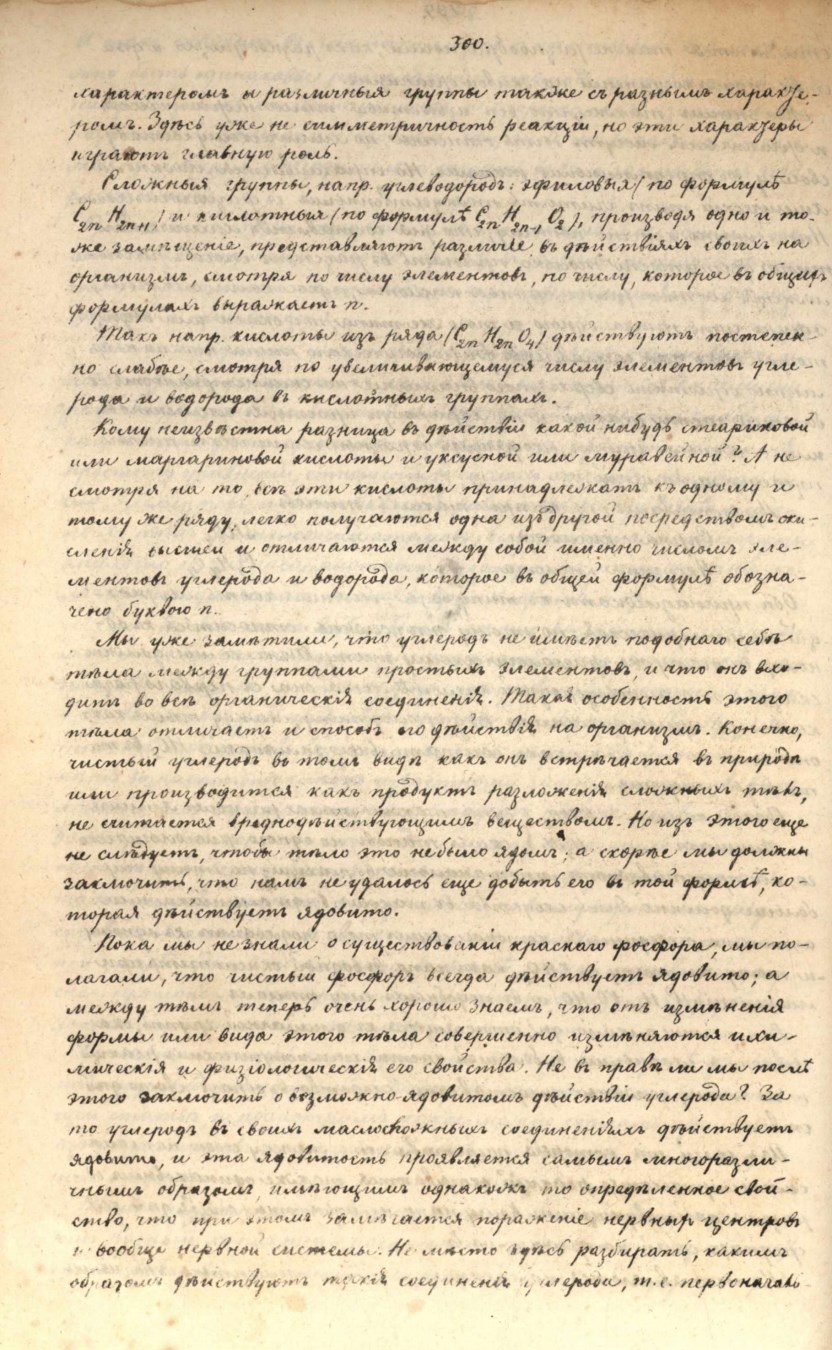 300.
характеромъ и различныя группы также съ разнымъ характе-
ромъ. Здѣсь уже не симметричность реакціи, но эти характеры
играютъ главную роль.
Сложныя группы, напр. углеводородъ: эфиловыя (по формулѣ
C2n H2n+1) и кислотныя (по формулѣ C2n H2n-1 O2), производя одно и то-
же замѣщеніе, представляютъ различіе въ дѣйствіяхъ своихъ на
организмъ, смотря по числу элементовъ, по числу, которое въ общихъ
формулахъ выражаетъ n.
Такъ напр. кислоты изъ ряда (C2n H2n O4) дѣйствуютъ постепен-
но слабѣе, смотря по увеличивающемуся числу элементовъ угле-
рода и водорода въ кислотныхъ группахъ.
Кому неизвѣстна разница въ дѣйствіи какой нибудь стеариновой
или маргариновой кислоты и уксусной или муравейной? А не
смотря на то, всѣ эти кислоты принадлежатъ къ одному и
тому же ряду, легко получаются одна изъ другой посредствомъ оки-
сленія высшей и отличаются между собой именно числомъ эле-
ментовъ углерода и водорода, которое въ общей формулѣ обозна-
чено буквою n.
Мы уже замѣтили, что углеродъ не имѣетъ подобнаго себѣ
тѣла между группами простыхъ элементовъ, и что онъ вхо-
дитъ во всѣ органическія соединенія. Такая особенность этого
тѣла отличаетъ и способъ его дѣйствія на организмъ. Конечно,
чистый углеродъ въ томъ видѣ какъ онъ встрѣчается въ природѣ
или производится какъ продуктъ разложенія сложныхъ тѣлъ,
не считается вреднодѣйствующимъ веществомъ. Но изъ этого еще
не слѣдуетъ, чтобы тѣло это не было ядомъ; а скорѣе мы должны
заключить, что намъ не удалось еще добыть его въ той формѣ, ко-
торая дѣйствуетъ ядовито.
Пока мы не знали о существованіи краснаго фосфора, мы по-
лагали, что чистый фосфоръ всегда дѣйствуетъ ядовито; а
между тѣмъ теперь очень хорошо знаемъ, что отъ измѣненія
формы или вида этого тѣла совершенно измѣняются и хи-
мическія и физіологическія его свойства. Не въ правѣ ли мы послѣ
этого заключить о возможно-ядовитомъ дѣйствіи углерода? За
то углеродъ въ своихъ маслосложныхъ соединеніяхъ дѣйствуетъ
ядовито, и эта ядовитость проявляется самымъ многоразли-
чнымъ образомъ, имѣющимъ однакожъ то опредѣленное свой-
ство, что при этомъ замѣчается пораженіе нервныхъ центровъ
и вообще нервной системы. Не мѣсто здѣсь разбирать, какимъ
образомъ дѣйствуютъ такія соединенія углерода, т.е. первоначаль-